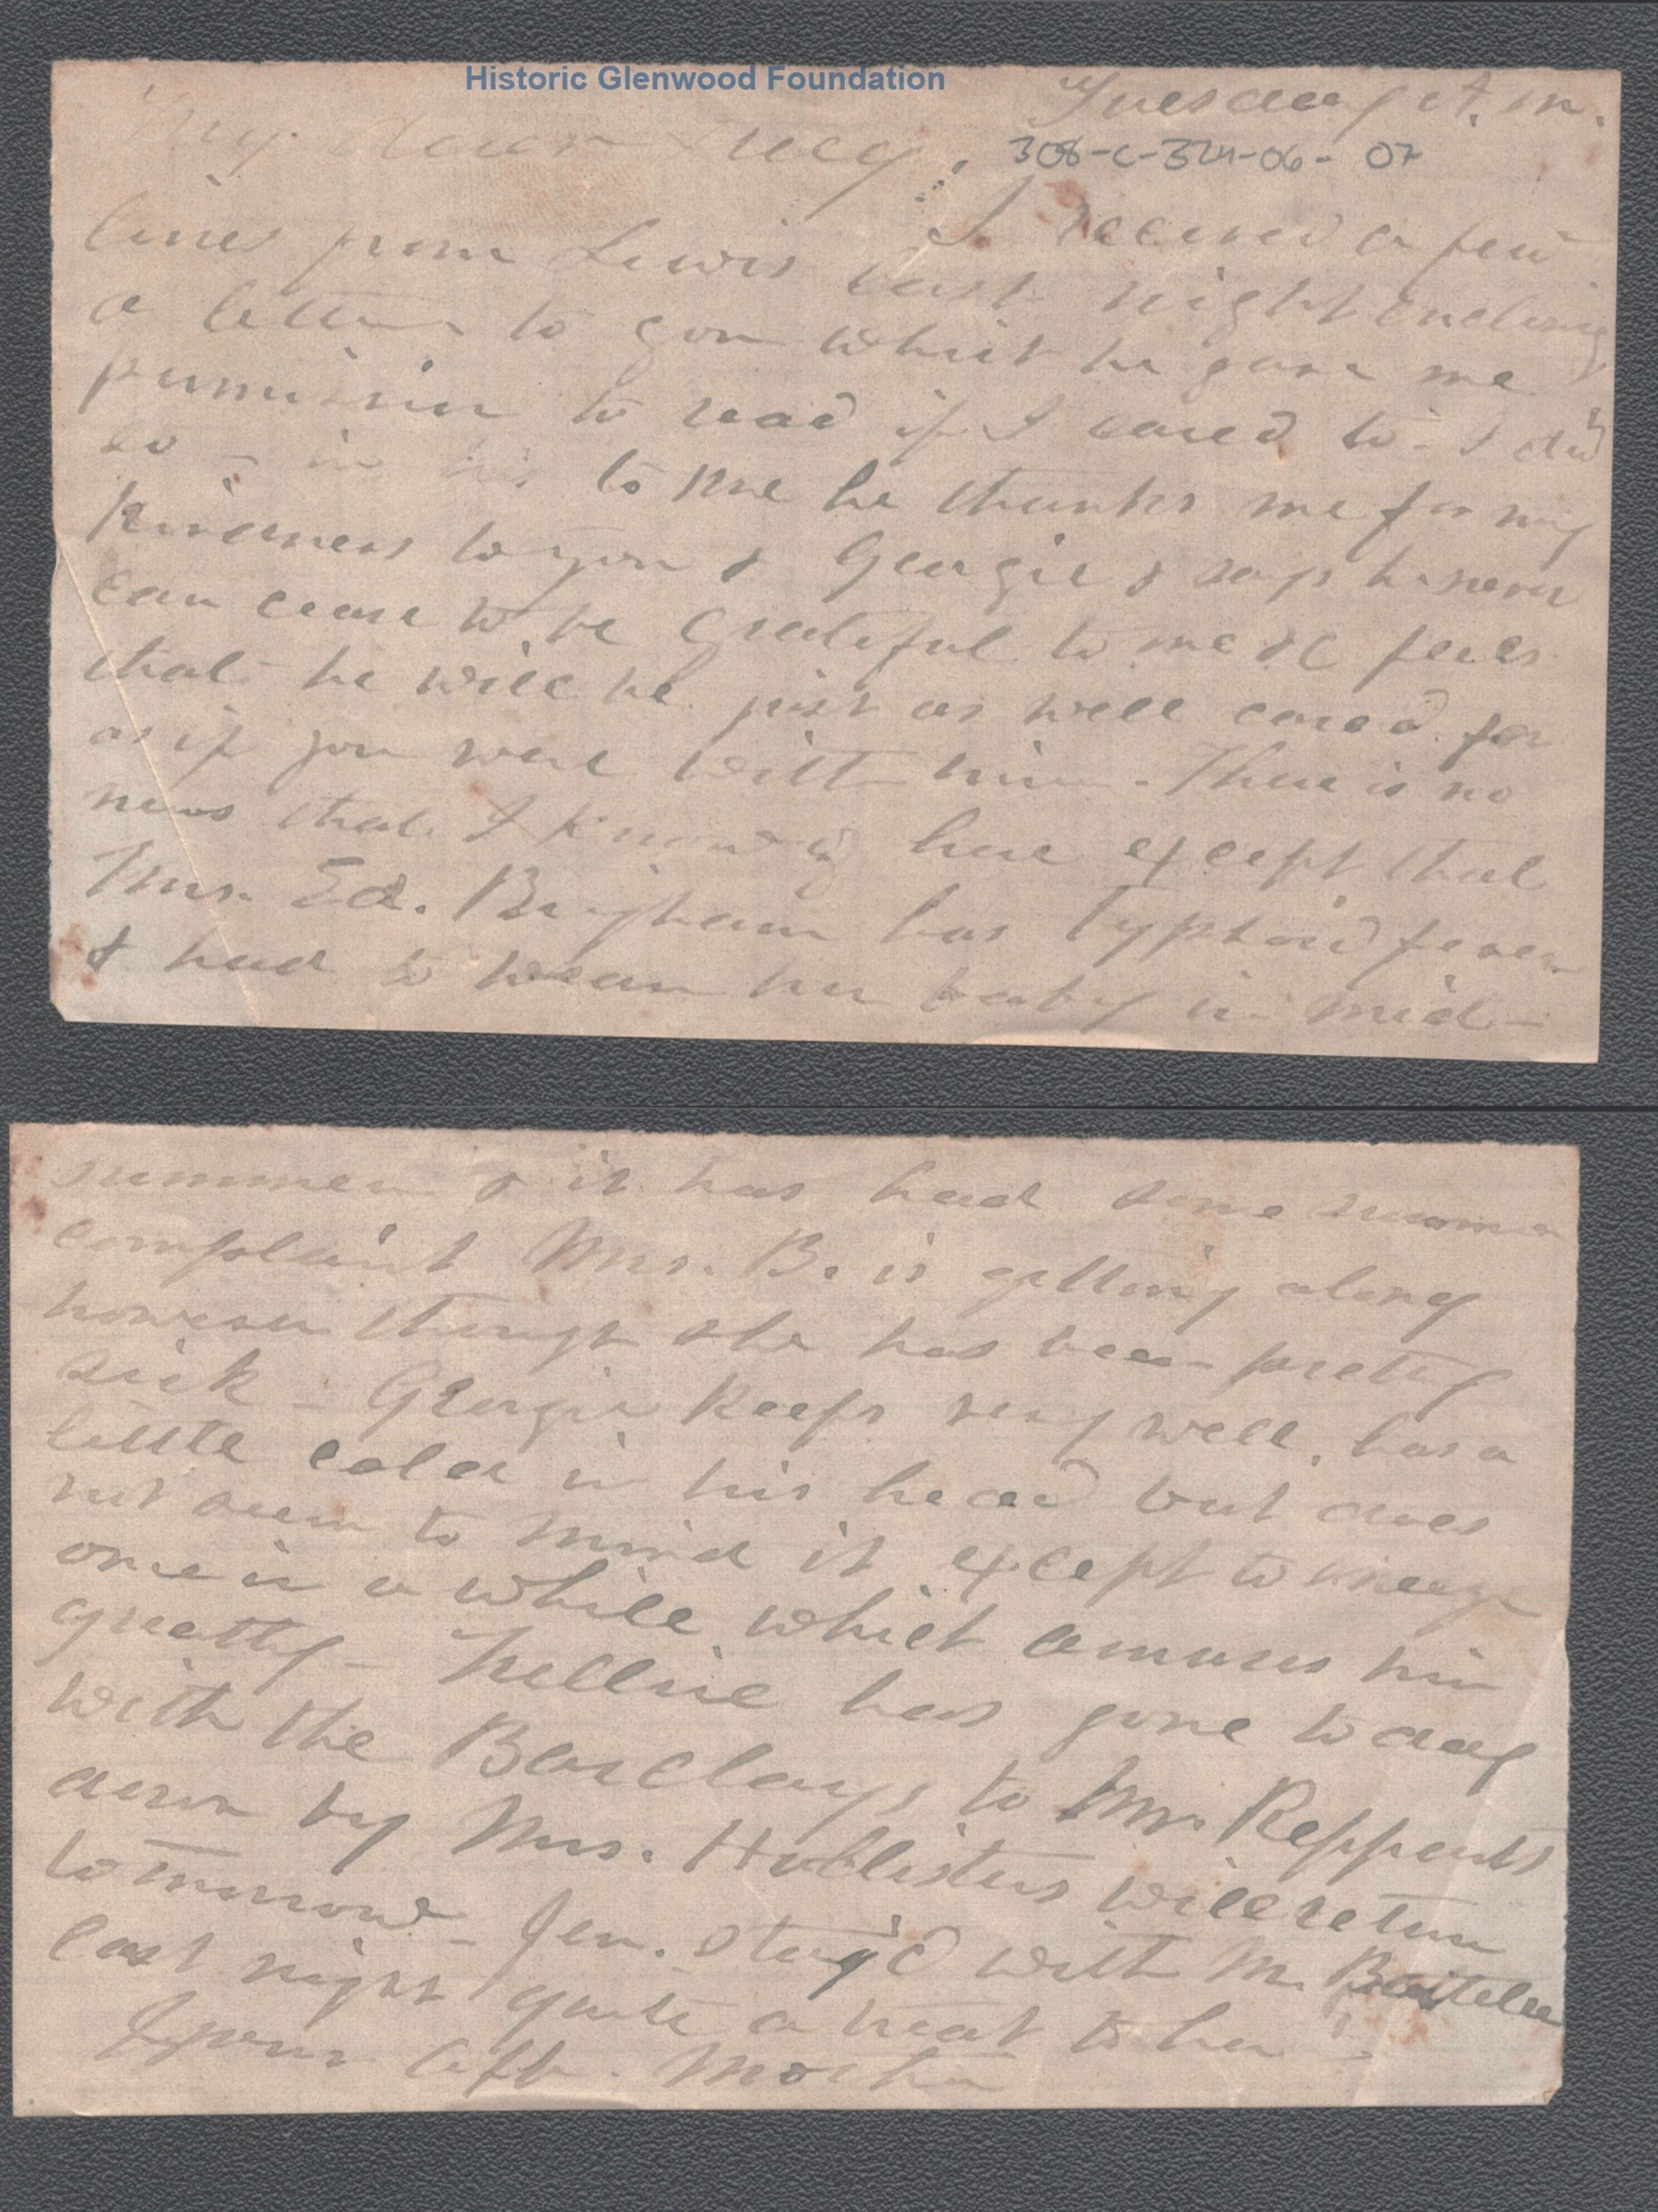 Historic Glenwood Foundation
Tuesday A.m.
My dear Lucy,
308-C-324-06- 07
I received a few
lines from Lewis last night enclosing
a letter to you which he gave me
permission to read if I cared to - I did
so - in his to me he thanks me for my
kindness to you & Georgie & says he never
can cease to be grateful to me &c feels
that he will be just as well cared for
as if you were with him - There is no
news that I know of here except that
Mrs. Ed. Brigham has typhoid fever
& had to wean her baby in mid-
summer & it has had some summer
complaint Mrs. B. is getting along
however though she has been pretty
sick - Georgie keeps very well, has a
little cold in his head but does
not seem to mind it except to sneeze
once in a while which amuses him
greatly - Nellie has gone to day
with the Barclays to Mr. Reppents
down by Mrs. Hollisters will return
tomorrow - Jen. stay'd with M.
last night quite a treat to her -
Your aff. Mother